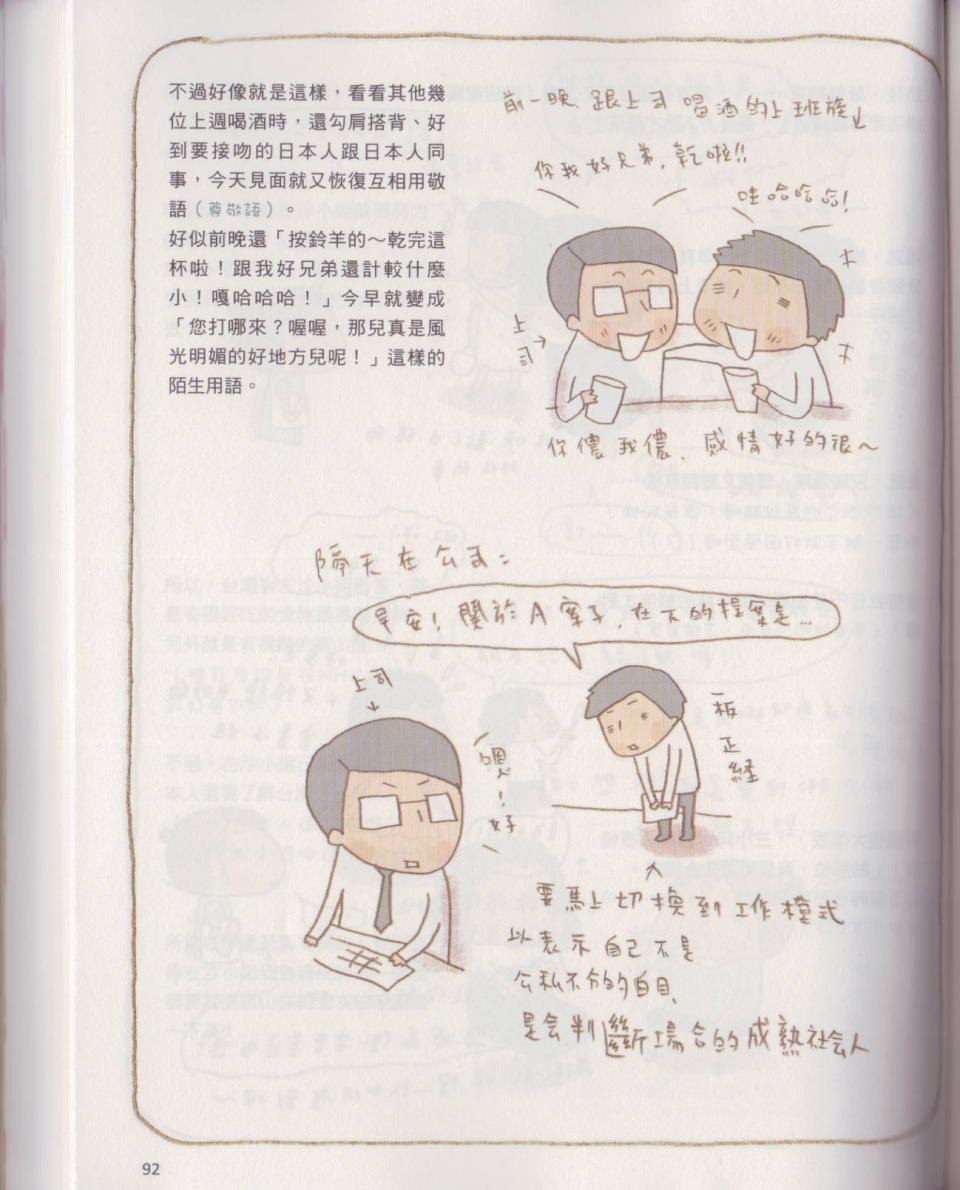 不過好像就是這樣，看看其他幾
位上週喝酒時，還勾肩搭背、好
到要接吻的日本人跟日本人同
事，今天見面就又恢復互相用敬
語（尊敬語）。
好似前晚還「按鈴羊的～乾完這
杯啦！跟我好兄弟還計較什麼
小！嘎哈哈哈！」今早就變成
「您打哪來？喔喔，那兒真是風
光明媚的好地方兒呢！」這樣的
陌生用語。
前一晚、跟上司喝酒的上班族
你我好兄弟，乾啦!!
哇哈哈哈!
上司
你儂我儂、感情好的很～
隔天在公司：
早安！關於A案子，在下的提案是…
上司
嗯！好
一板正経
要馬上切換到工作模式
以表示自己不是
公私不分的白目、
是会判斷場合的成熟社会人
92